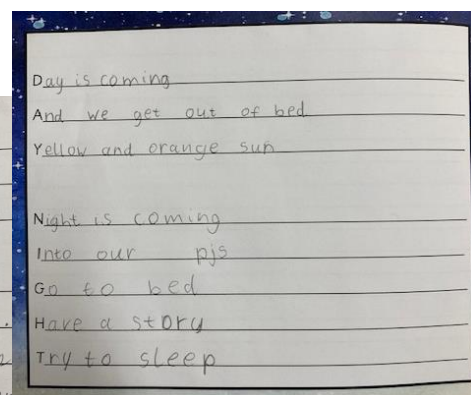 Day is coming
And we get out of bed
Yellow and orange sun
Night is coming
Into our pjs
Go to bed
Have a story
Try to sleep